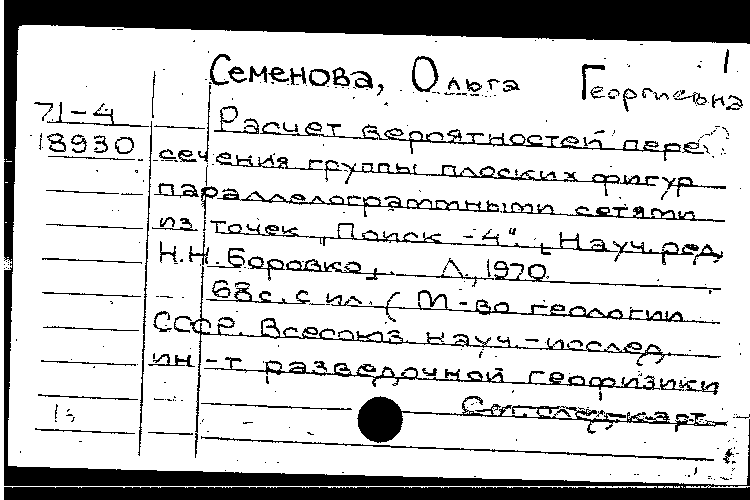 1
Семенова, Ольга Георгиевна
71-4
18930
Расчет вероятностей пере-
сечения группы плоских фигур
параллелограммными сетями
из точек „Поиск-4“. [Науч. ред.
Н.Н. Боровко]. Л., 1970.
68 с. с ил. (М-во геологии
СССР. Всесоюз. науч.-исслед.
ин-т разведочной геофизики
См. след. карт.